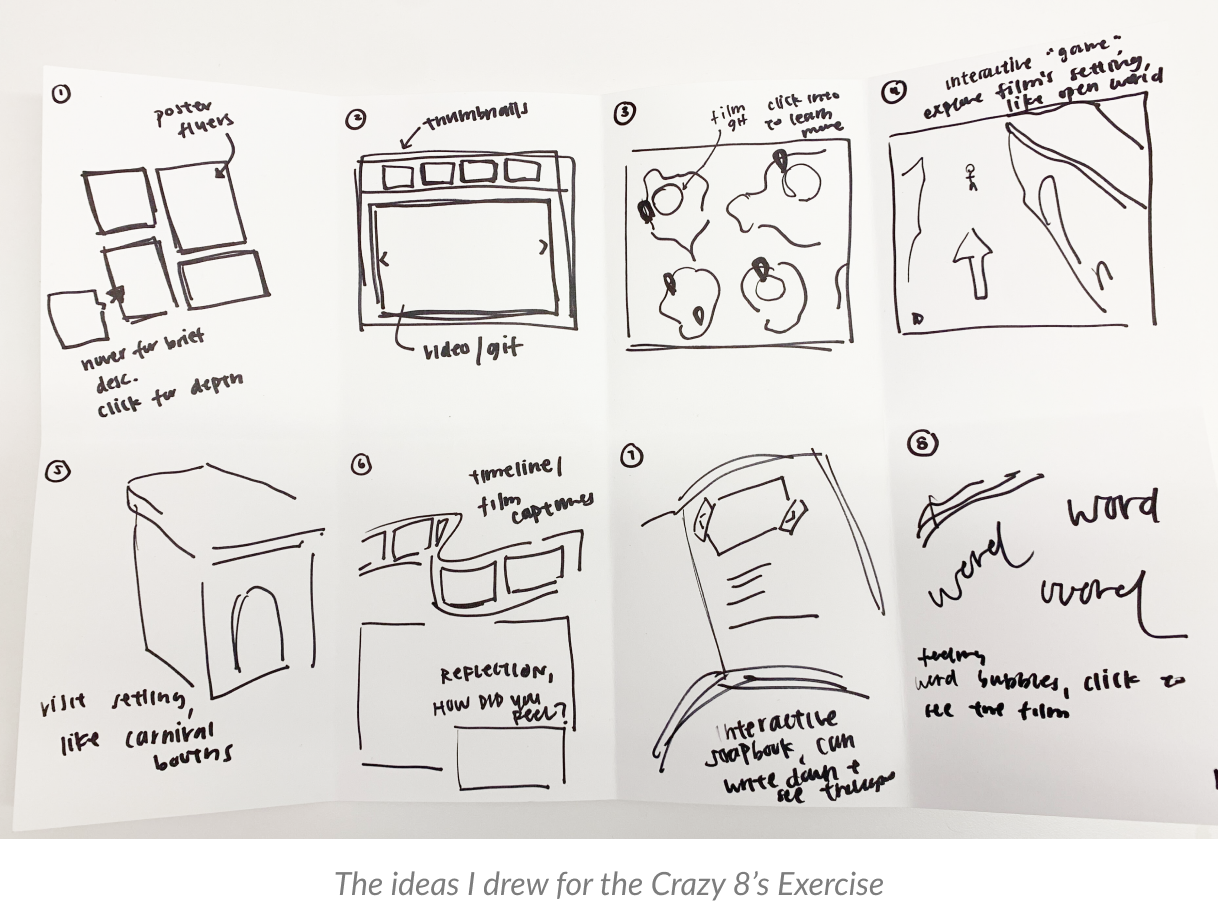 1
poster
flyers
hover for brief
desc.
click for depth
2
thumbnails
video/gif
3
film
gif
click into
to learn
more
4
interactive "game"
explore film's setting,
like open world
5
visit setting,
like carnival
booths
6
timeline/
film
captures
REFLECTION,
HOW DID YOU
FEEL?
7
interactive
scrapbook, can
write down +
see
8
word
word
word
feeling
word bubbles, click to
see the film
The ideas I drew for the Crazy 8's Exercise